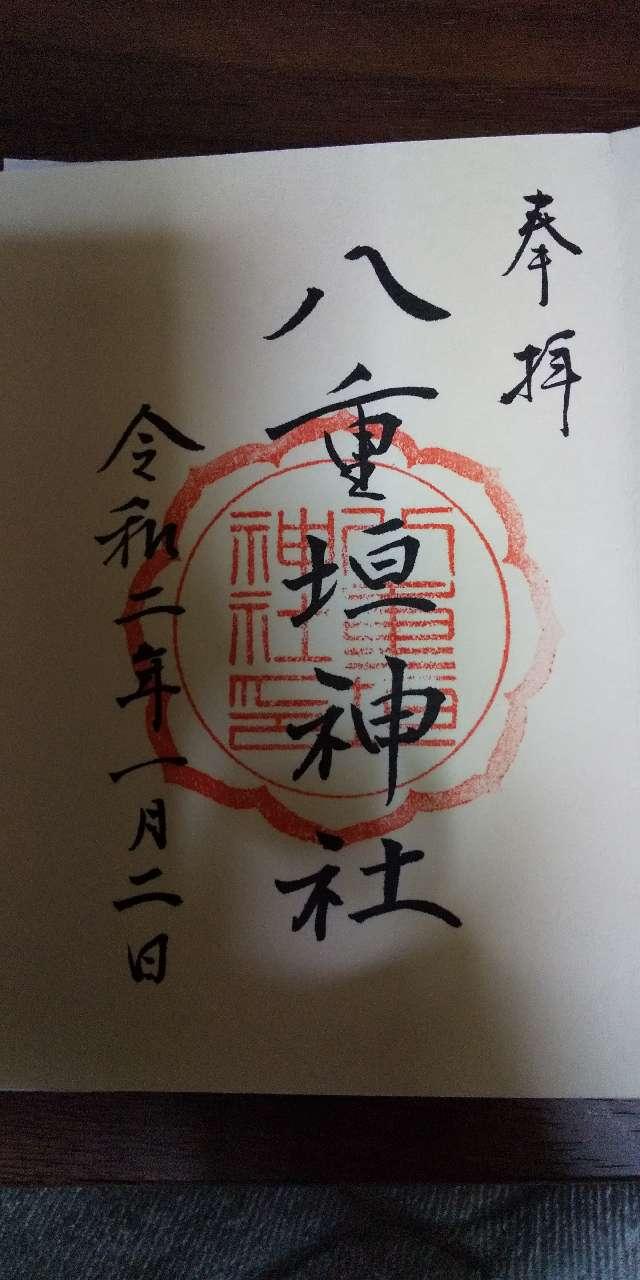 奉拝
八重垣神社
八重垣
神社印
令和二年一月二日